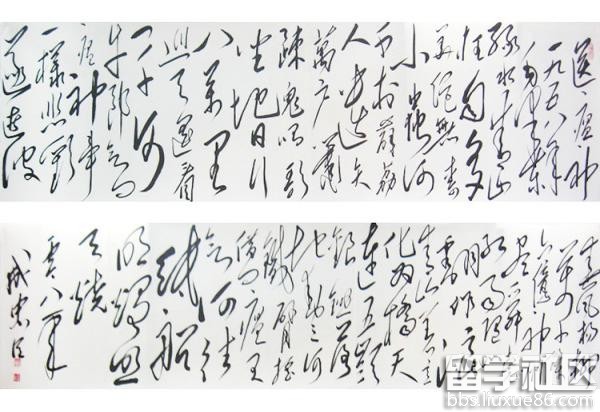 送瘟神
一九五八年
绿水青山
枉自多
华佗无奈
小虫何
千村薜荔
人遗矢
萬户萧
疎鬼唱歌
坐地日行
八萬里
巡天遥看
一千河
牛郎欲问
瘟神事
一样悲歡
逐逝波
春风杨柳
萬千条
六億神州
尽舜尧
红雨随心
翻作浪
青山着意
化为橋天
連五嶺
銀鋤落
地动三河
鐵臂摇
借问瘟君
欲何往
紙船
明烛照
天燒
零八年
留学社区
bbs.liuxue86.com